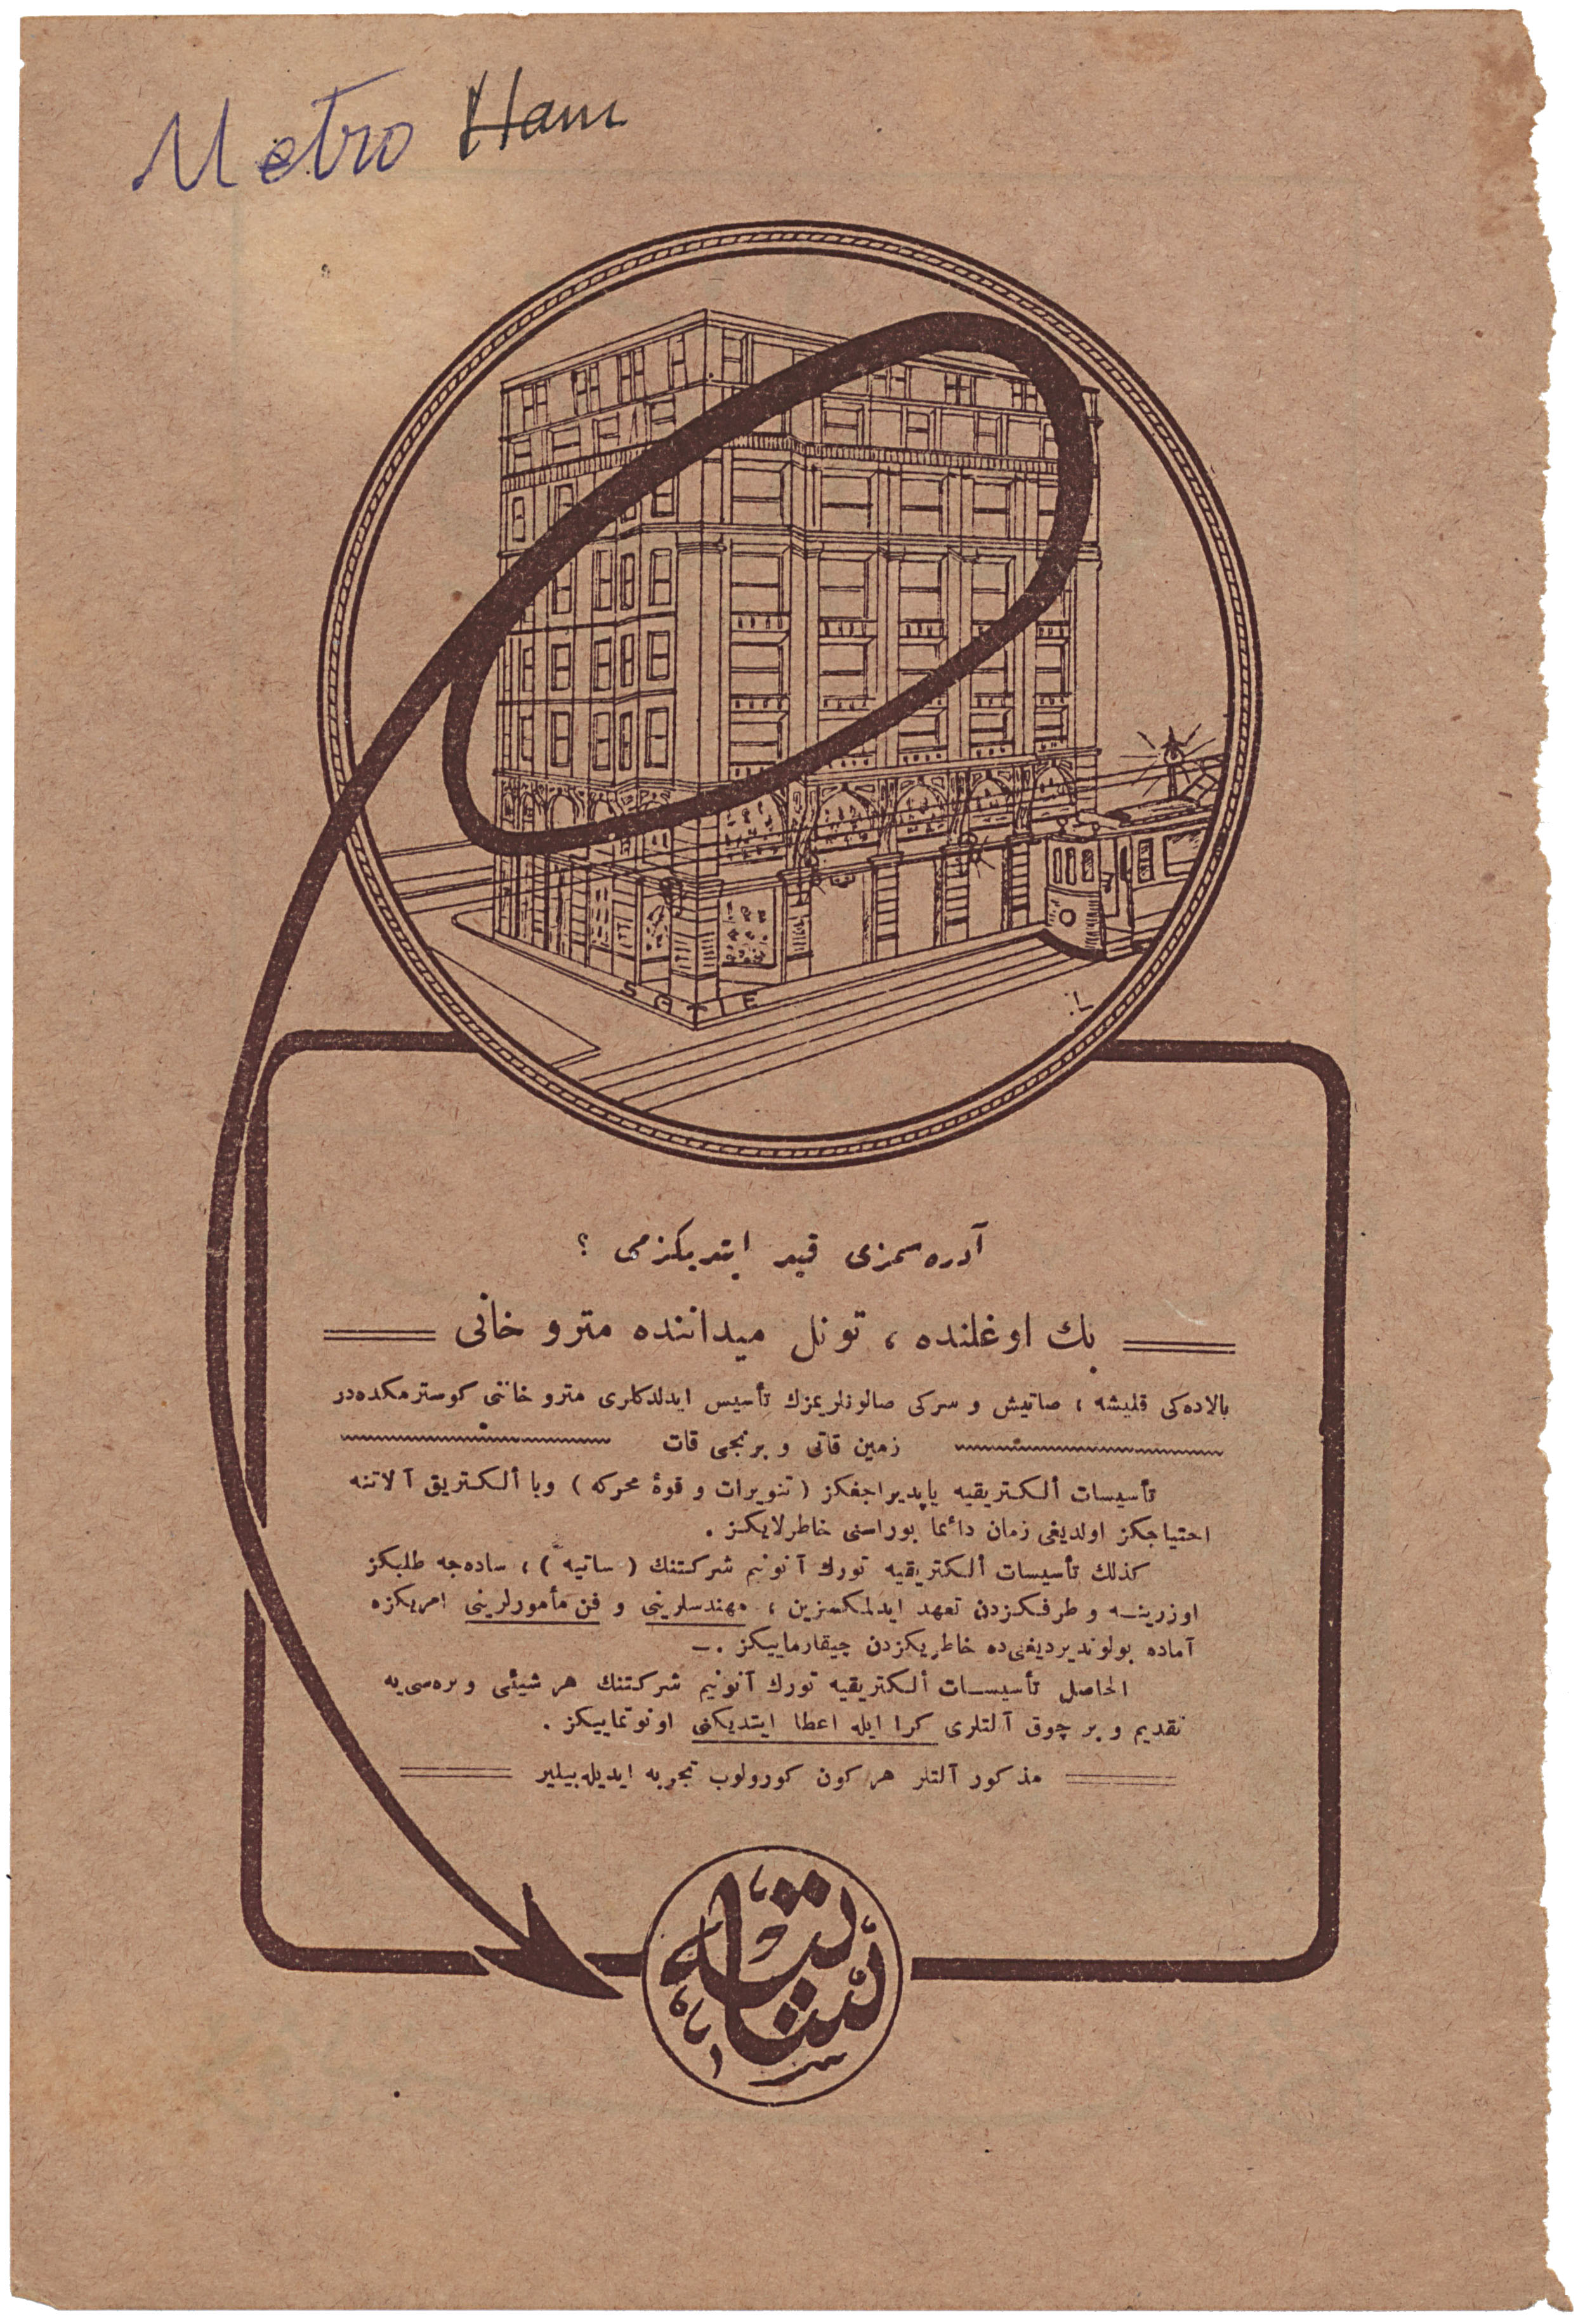 Metro Hanı
SATIE
آدره‌سمزی قید ایتدیكزمی ؟
بك اوغلنده ، تونل میداننده مترو خانی
بالاده‌كی قلیشه ، صاتیش و سركی صالونلریمزك تأسیس ایدلدكلری مترو خاننی كوسترمكده‌در
زمین قاتی و برنجی قات
تأسیسات ألكتریقیه یاپدیراجغكز ( تنویرات و قوۀ محركه ) ویا ألكتریق آلاتنه
احتیاجكز اولدیغی زمان دائما بوراسنی خاطرلایكز .
كذلك تأسیسات ألكتریقیه تورك آنونیم شركتنك ( ساتیه ) ، ساده‌جه طلبكز
اوزرینه و طرفكزدن تعهد ایدلمكسزین ، مهندسلرینی و فن مأمورلرینی امریكزه
آماده بولوندیردیغی‌ده خاطریكزدن چیقارماییكز . —
الحاصل تأسیسات ألكتریقیه تورك آنونیم شركتنك هر شیئی ویره‌سی‌یه
تقدیم و بر چوق آلتلری كرا ایله اعطا ایتدیكنی اونوتماییكز .
مذكور آلتلر هر كون كورولوب تجربه ایدیله‌بیلیر
ساتیه